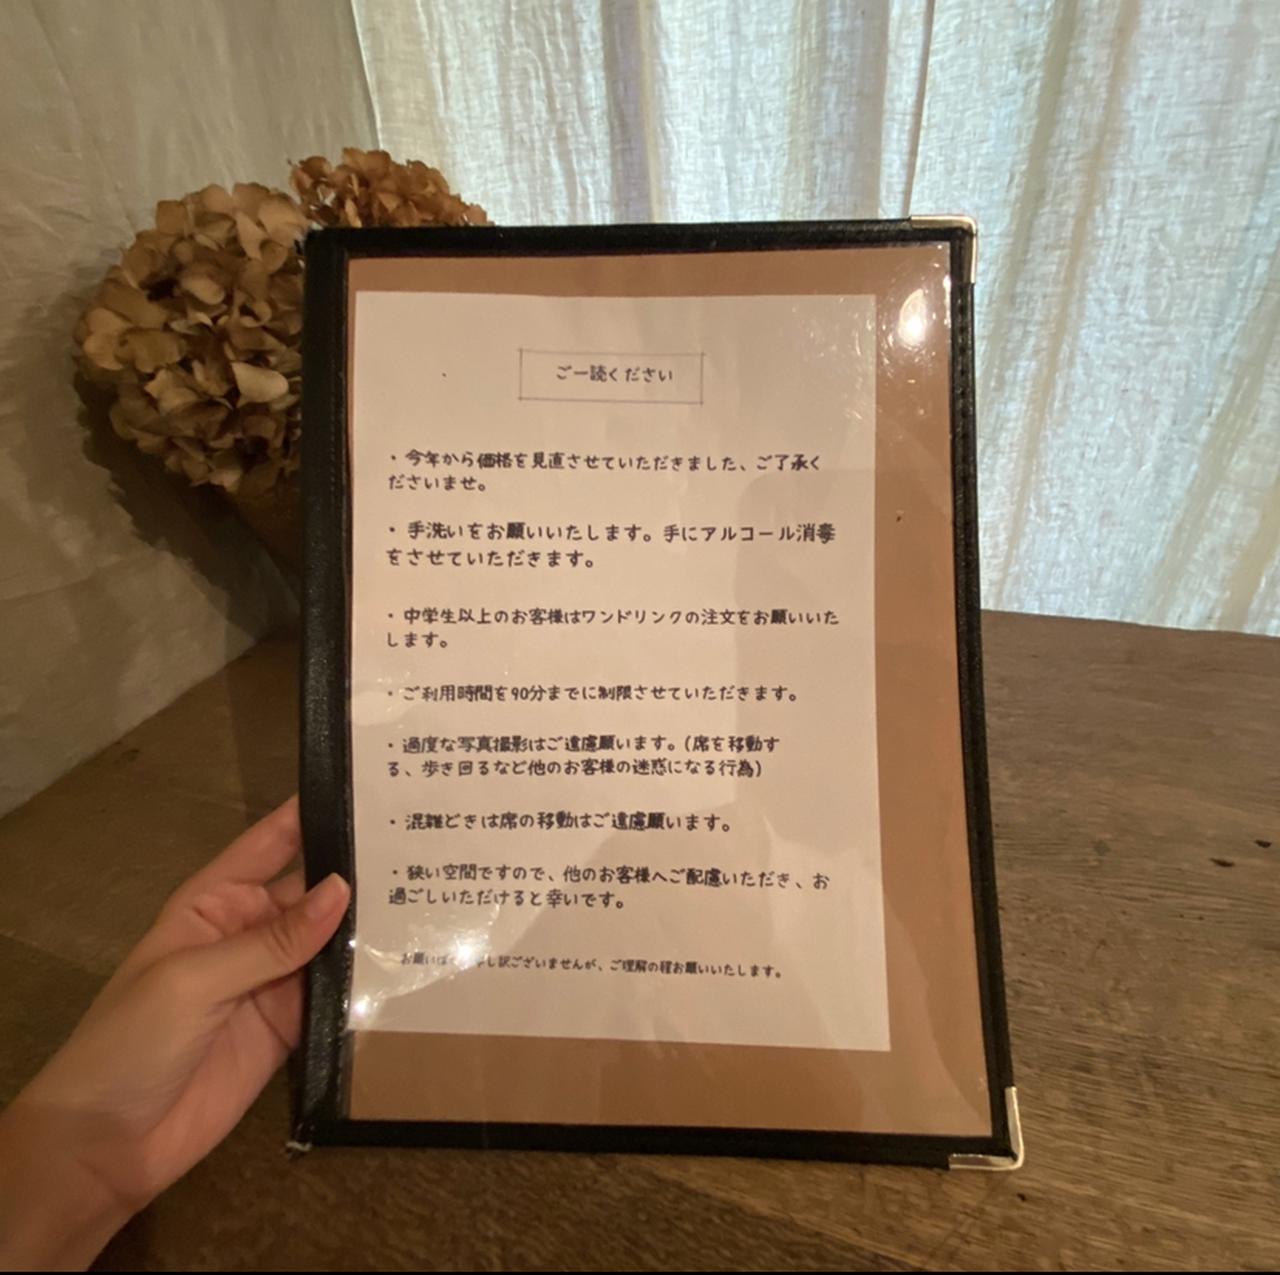 ご一読ください
・今年から価格を見直させていただきました、ご了承く
ださいませ。
・手洗いをお願いいたします。手にアルコール消毒
をさせていただきます。
・中学生以上のお客様はワンドリンクの注文をお願いいた
します。
・ご利用時間を90分までに制限させていただきます。
・過度な写真撮影はご遠慮願います。(席を移動す
る、歩き回るなど他のお客様の迷惑になる行為)
・混雑どきは席の移動はご遠慮願います。
・狭い空間ですので、他のお客様へご配慮いただき、お
過ごしいただけると幸いです。
お願いば し訳ございませんが、ご理解の程お願いいたします。